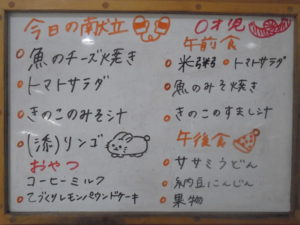 今日の献立
魚のチーズ焼き
トマトサラダ
きのこのみそ汁
(添)リンゴ
おやつ
コーヒーミルク
てづくりレモンパウンドケーキ
0才児
午前食
米粥 トマトサラダ
魚のみそ焼き
きのこのすまし汁
午後食
ササミうどん
納豆にんじん
果物